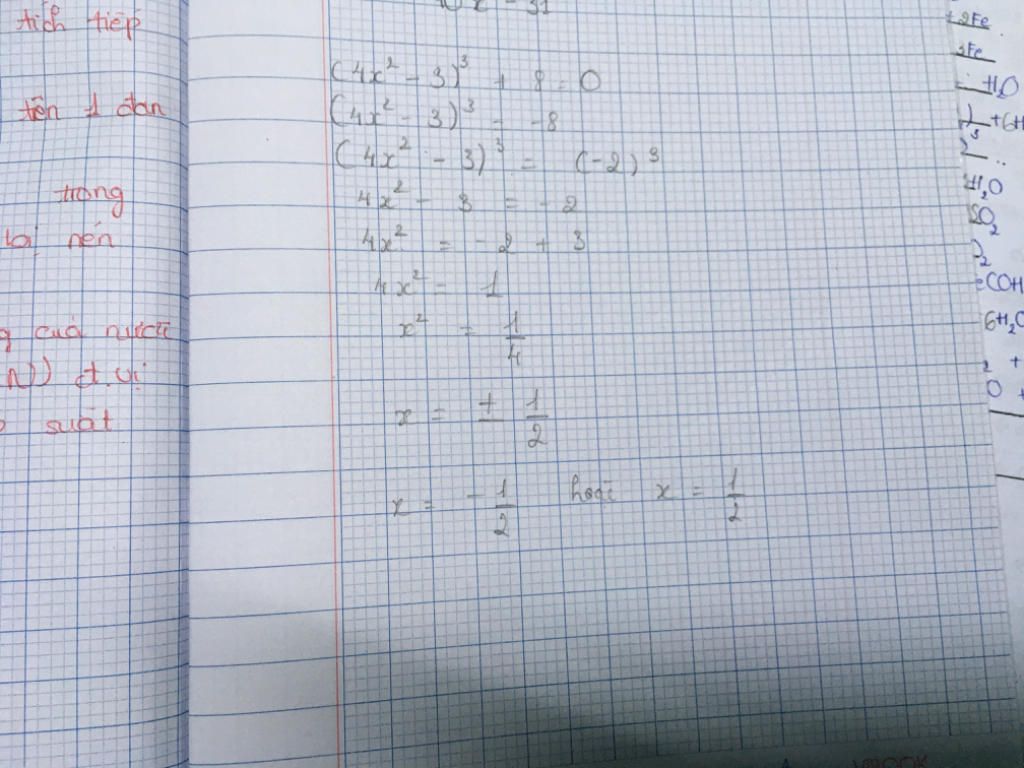 tích tiếp
tên 1 đơn
trong
bị nén
g của nước
N)) đ.vị
suất
x - 31
(4x² - 3)³ + 8 = 0
(4x² - 3)³ = -8
(4x² - 3)³ = (-2)³
4x² - 3 = -2
4x² = -2 + 3
4x² = 1
x² = 1/4
x = ± 1/2
x = - 1/2 hoặc x = 1/2
+ 2Fe
3Fe
H₂O
+ 6H
H₂O
SO₂
COH
6H₂O